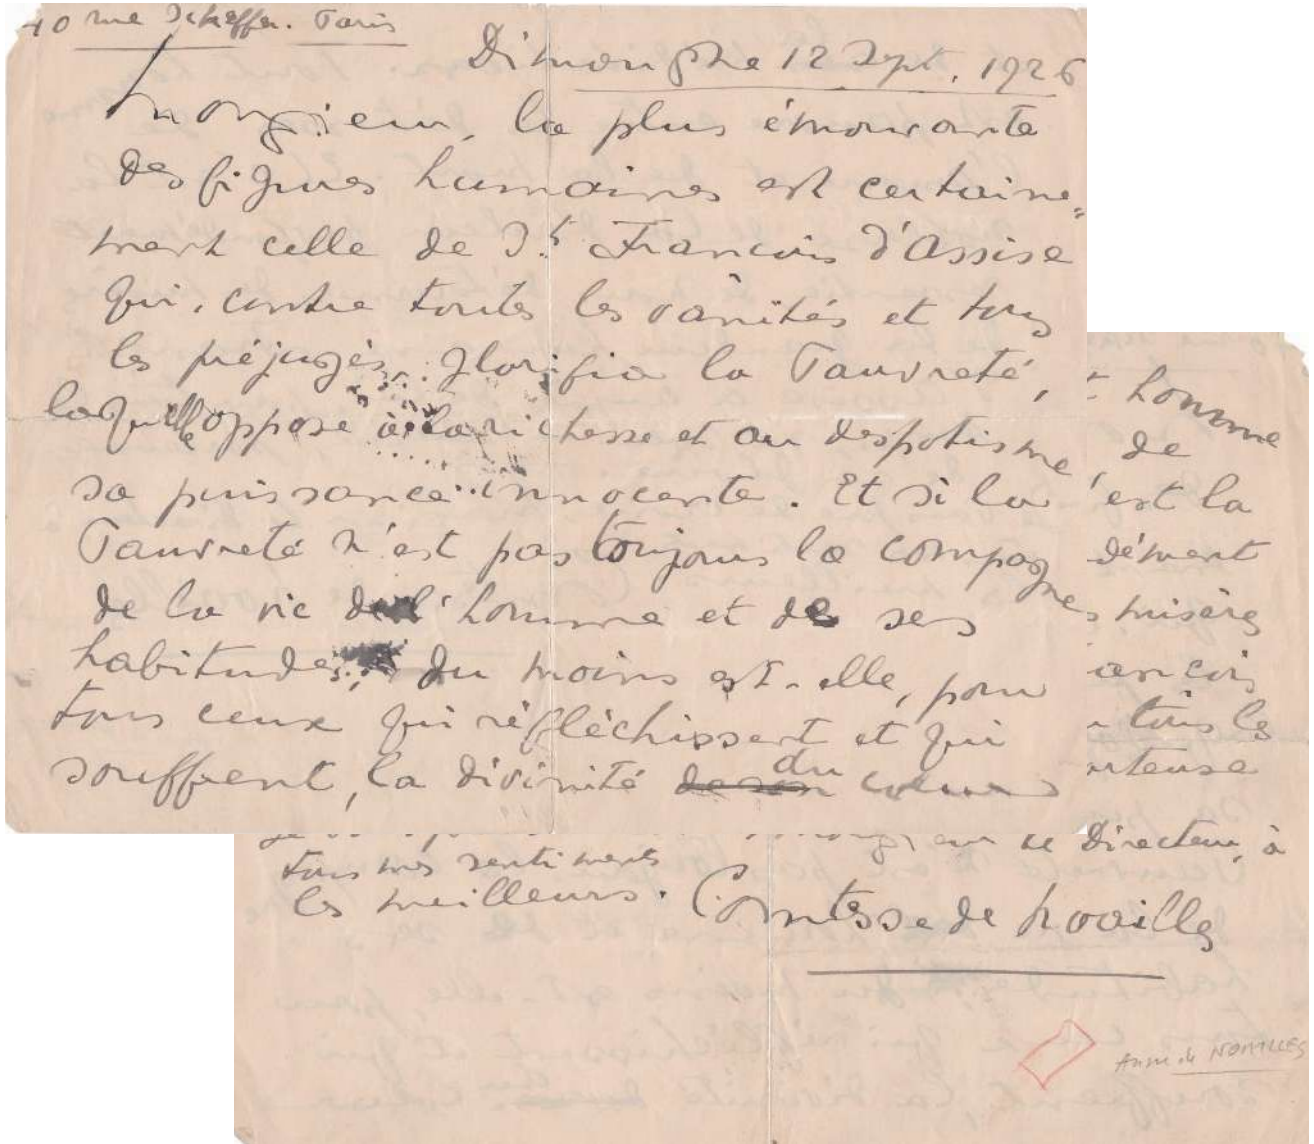 40 rue Scheffer. Paris
Dimanche 12 Sept. 1926
Monsieur, la plus émouvante
des figures humaines est certaine=
ment celle de St. François d'Assise
qui, contre toutes les vanités et tous
les préjugés, glorifia la Pauvreté,
laquelle oppose à la richesse et au despotisme
sa puissance innocente. Et si la
Pauvreté n'est pas toujours la compagne
de la vie de l'homme et de ses
habitudes, du moins est-elle, pour
tous ceux qui réfléchissent et qui
souffrent, la divinité du coeur
homme
, de
'est la
dément
misère
ançois
tous les
rteuse
Monsieur le Directeur, à
tous mes sentiments
les meilleurs. Comtesse de Noailles
Anna de NOAILLES